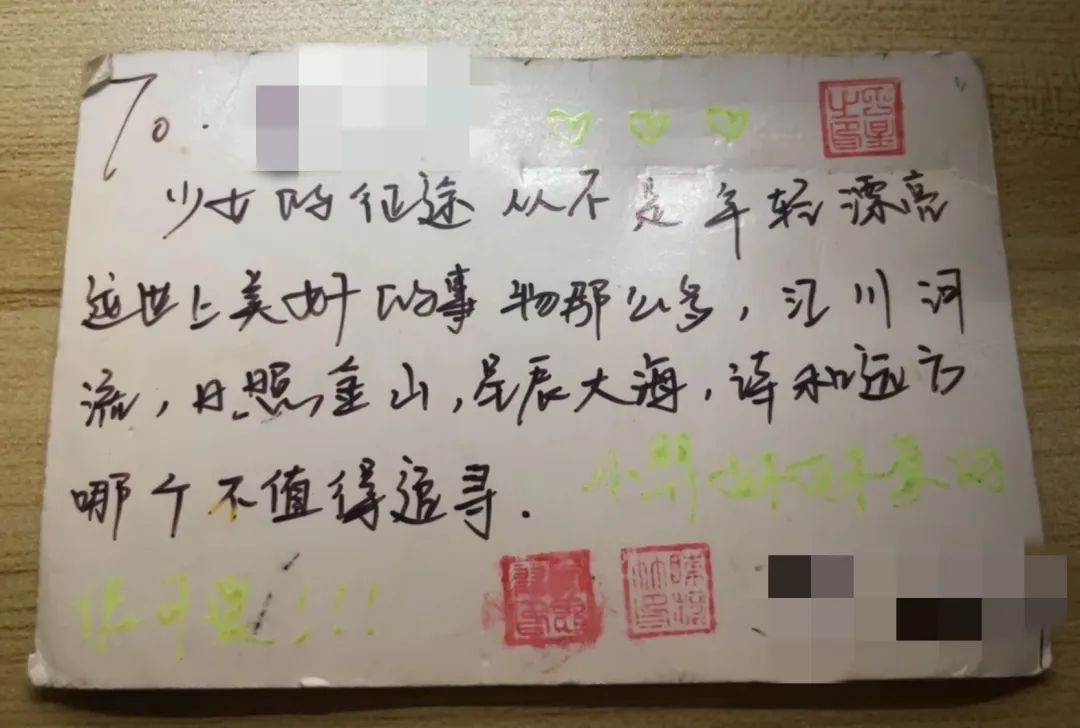 To.
少女的征途从不是年轻漂亮
这世上美好的事物那么多，江川河
流，日照金山，星辰大海，诗和远方
哪个不值得追寻.
很可爱!!!